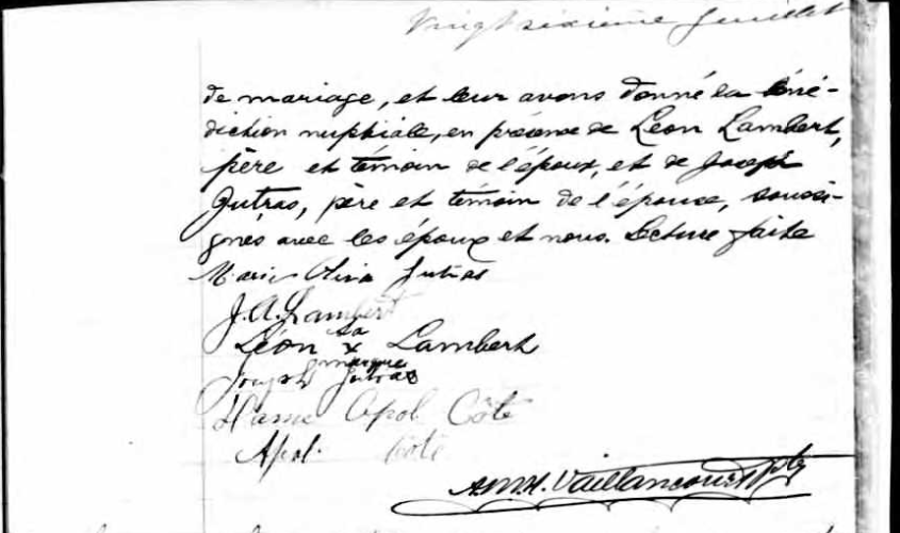 Vingt sixième Juillet
de mariage, et leur avons donné la béné-
diction nuptiale, en présence de Léon Lambert,
père et témoin de l'époux, et de Joseph
Jutras, père et témoin de l'épouse, soussi-
gnés avec les époux et nous. Lecture faite
Marie Oliva Jutras
J. A. Lambert
sa
Léon x Lambert
marque
Joseph Jutras
Apol Côté
Apol. Côté
Vaillancourt Ptre